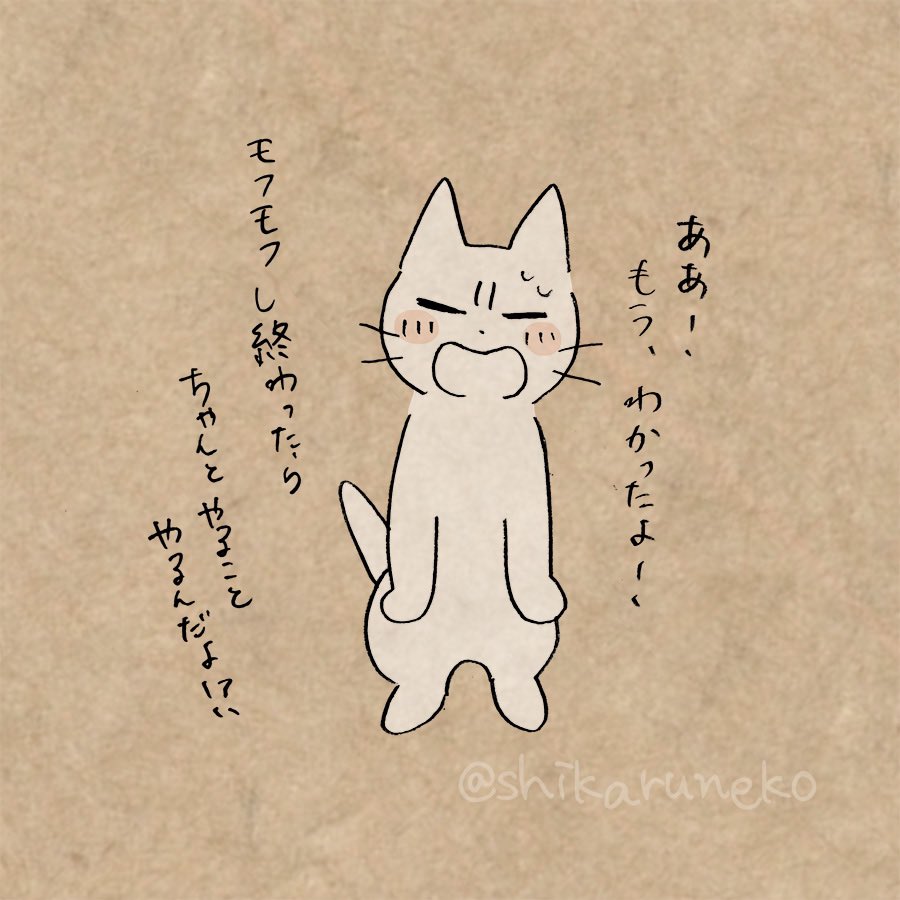 ああー、
もう、わかったよー、
モフモフし終わったら
ちゃんとやること
やるんだよ!?、、
@shikaruneko